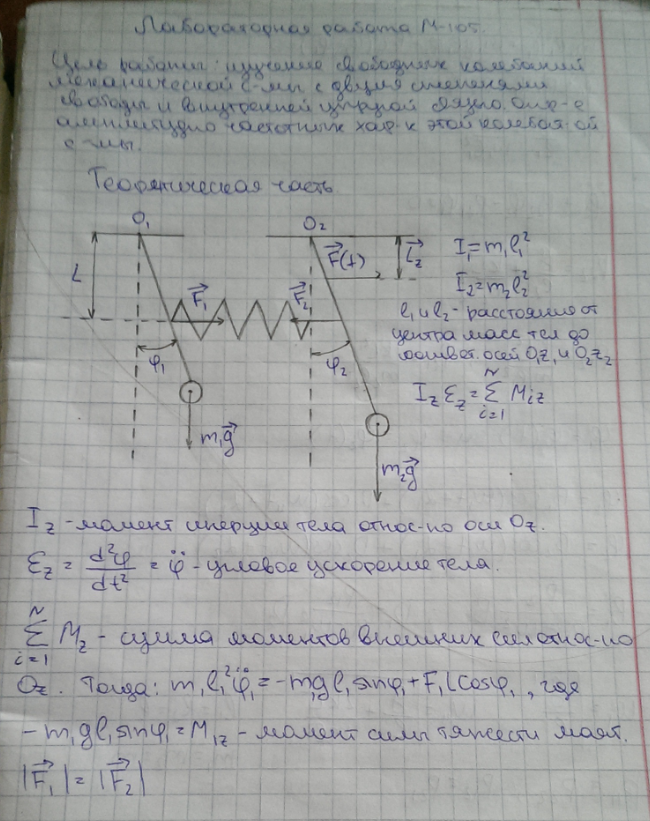 Лабораторная работа М-105
Цель работы: изучение свободных колебаний
механической с-мы с двумя степенями
свободы и внутренней упругой связью. Опр-е
амплитудно частотных хар-к этой колебат-ой
с-мы.
Теоретическая часть
O₁ O₂
L F₁ F₂ F(t) L₂
φ₁ φ₂
m₁g m₂g
I₁=m₁l₁²
I₂=m₂l₂²
l₁ и l₂ - расстояния от
центра масс тел до
соответ. осей O₁z₁ и O₂z₂
I_z ε_z = Σ_{i=1}^{N} M_{iz}
I_z - момент инерции тела относ-но оси O_z.
ε_z = d²φ/dt² = φ̈ - угловое ускорение тела.
Σ_{i=1}^{N} M_z - сумма моментов внешних сил относ-но
O_z. Тогда: m₁l₁²φ̈₁=-m₁gl₁sinφ₁+F₁Lcosφ₁, где
-m₁gl₁sinφ₁=M₁z - момент силы тяжести маят.
|F₁|=|F₂|